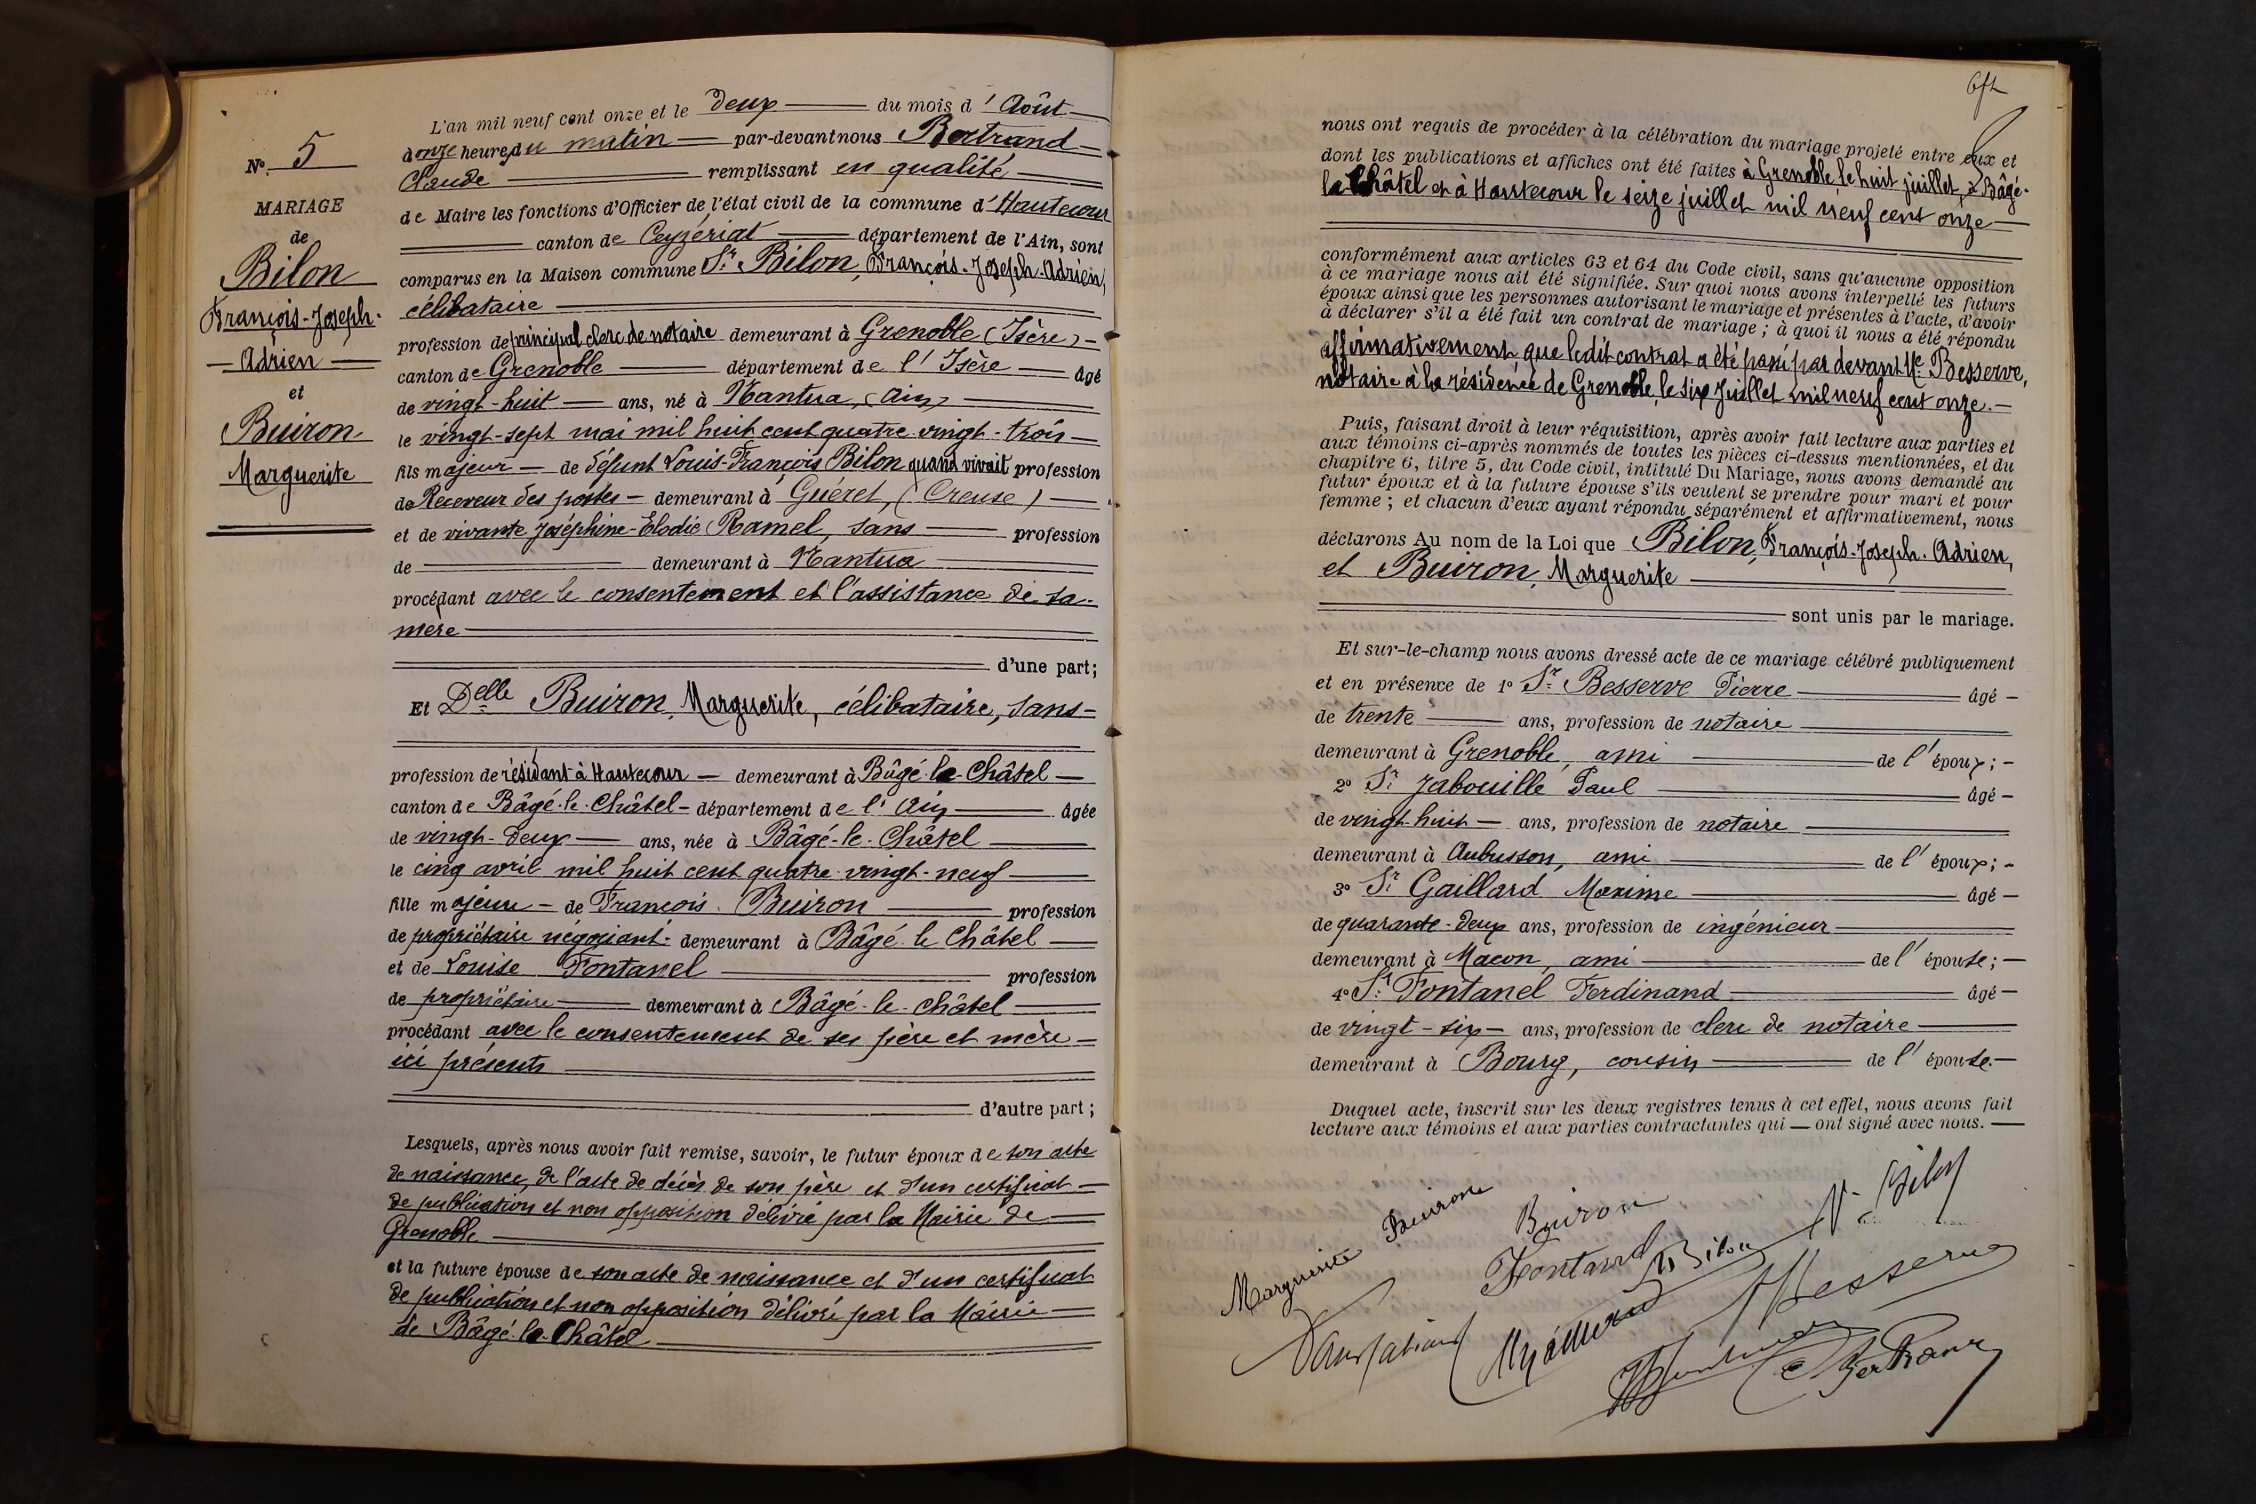 N° 5
MARIAGE
de
Bilon
François-Joseph-
Adrien
et
Buiron
Marguerite
L'an mil neuf cent onze et le deux du mois d'Août
à onze heures du matin par-devant nous Bertrand
Claude remplissant en qualité
de Maire les fonctions d'Officier de l'état civil de la commune d'Hautecour
canton de Ceyzériat département de l'Ain, sont
comparus en la Maison commune Sr Bilon, François-Joseph-Adrien,
célibataire
profession de principal clerc de notaire demeurant à Grenoble (Isère)
canton de Grenoble département de l'Isère âgé
de vingt-huit ans, né à Nantua, (Ain)
le vingt-sept mai mil huit cent quatre-vingt-trois
fils majeur de défunt Louis-François Bilon quand vivait profession
de Receveur des postes demeurant à Guéret, (Creuse)
et de vivante Joséphine-Elodie Ramel, sans profession
de demeurant à Nantua
procédant avec le consentement et l'assistance de sa
mère
d'une part;
Et Delle Buiron, Marguerite, célibataire, sans
profession de résidant à Hautecour demeurant à Bâgé-le-Châtel
canton de Bâgé-le-Châtel département de l'Ain âgée
de vingt-deux ans, née à Bâgé-le-Châtel
le cinq avril mil huit cent quatre-vingt-neuf
fille majeure de François Buiron profession
de propriétaire négociant demeurant à Bâgé le Châtel
et de Louise Fontanel profession
de propriétaire demeurant à Bâgé-le-Châtel
procédant avec le consentement de ses père et mère
ici présents
d'autre part;
Lesquels, après nous avoir fait remise, savoir, le futur époux de son acte
de naissance, de l'acte de décès de son père et d'un certificat
de publication et non opposition délivré par la Mairie de
Grenoble
et la future épouse de son acte de naissance et d'un certificat
de publication et non opposition délivré par la Mairie
de Bâgé-le-Châtel
nous ont requis de procéder à la célébration du mariage projeté entre eux et
dont les publications et affiches ont été faites à Grenoble le huit juillet, à Bâgé-
le Châtel et à Hautecour le seize juillet mil neuf cent onze
conformément aux articles 63 et 64 du Code civil, sans qu'aucune opposition
à ce mariage nous ait été signifiée. Sur quoi nous avons interpellé les futurs
époux ainsi que les personnes autorisant le mariage et présentes à l'acte, d'avoir
à déclarer s'il a été fait un contrat de mariage; à quoi il nous a été répondu
affirmativement que ledit contrat a été passé par devant Me Besserve,
notaire à la résidence de Grenoble, le six Juillet mil neuf cent onze.
Puis, faisant droit à leur réquisition, après avoir fait lecture aux parties et
aux témoins ci-après nommés de toutes les pièces ci-dessus mentionnées, et du
chapitre 6, titre 5, du Code civil, intitulé Du Mariage, nous avons demandé au
futur époux et à la future épouse s'ils veulent se prendre pour mari et pour
femme; et chacun d'eux ayant répondu séparément et affirmativement, nous
déclarons Au nom de la Loi que Bilon, François-Joseph-Adrien,
et Buiron, Marguerite
sont unis par le mariage.
Et sur-le-champ nous avons dressé acte de ce mariage célébré publiquement
et en présence de 1° Sr Besserve Pierre âgé
de trente ans, profession de notaire
demeurant à Grenoble, ami de l'époux;
2° Sr Jabouille Paul âgé
de vingt-huit ans, profession de notaire
demeurant à Aubusson, ami de l'époux;
3° Sr Gaillard Maxime âgé
de quarante-deux ans, profession de ingénieur
demeurant à Macon, ami de l'épouse;
4° Sr Fontanel Ferdinand âgé
de vingt-six ans, profession de clerc de notaire
demeurant à Bourg, cousin de l'épouse.
Duquel acte, inscrit sur les deux registres tenus à cet effet, nous avons fait
lecture aux témoins et aux parties contractantes qui ont signé avec nous.
Marguerite Buiron
Buiron
Bilon
Fontanel
Bilon
Besserve
C Bertrand